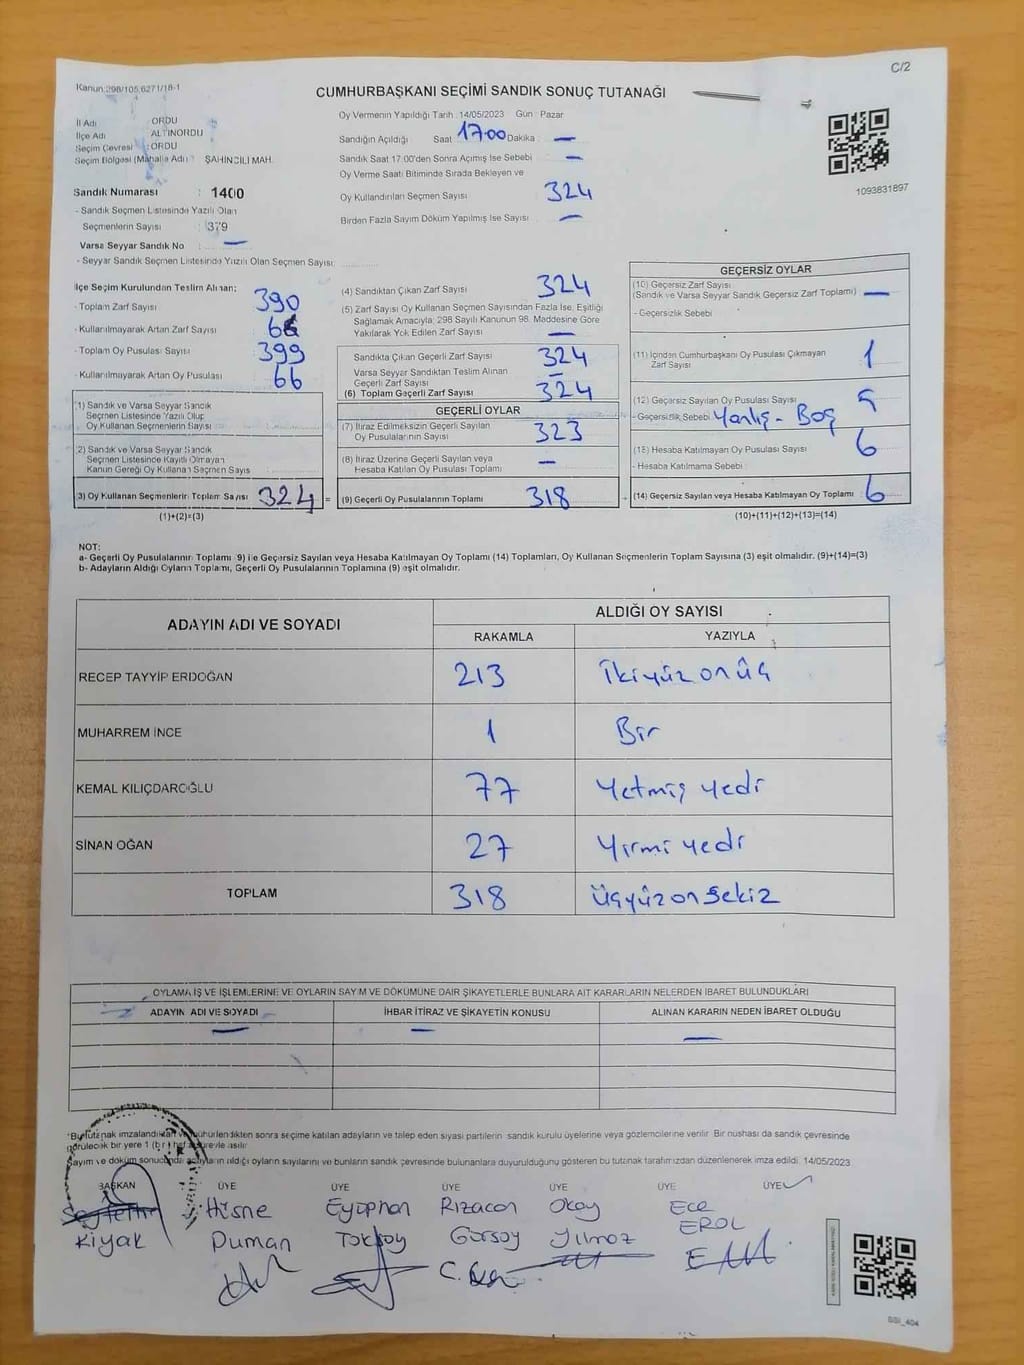 C/2
Kanun:298/105,6271/18-1
CUMHURBAŞKANI SEÇİMİ SANDIK SONUÇ TUTANAĞI
İl Adı : ORDU
İlçe Adı : ALTINORDU
Seçim Çevresi : ORDU
Seçim Bölgesi (Mahalle Adı) : ŞAHİNCİLİ MAH.
Sandık Numarası : 1400
- Sandık Seçmen Listesinde Yazılı Olan
Seçmenlerin Sayısı : 379
Varsa Seyyar Sandık No : —
- Seyyar Sandık Seçmen Listesinde Yazılı Olan Seçmen Sayısı:
Oy Vermenin Yapıldığı Tarih :14/05/2023 Gün : Pazar
Sandığın Açıldığı Saat 17:00 Dakika : —
Sandık Saat 17.00'den Sonra Açılmış İse Sebebi : —
Oy Verme Saati Bitiminde Sırada Bekleyen ve
Oy Kullandırılan Seçmen Sayısı : 324
Birden Fazla Sayım Döküm Yapılmış İse Sayısı : —
1093831897
İlçe Seçim Kurulundan Teslim Alınan;
- Toplam Zarf Sayısı : 390
- Kullanılmayarak Artan Zarf Sayısı : 66
- Toplam Oy Pusulası Sayısı : 399
- Kullanılmayarak Artan Oy Pusulası : 66
(1) Sandık ve Varsa Seyyar Sandık
Seçmen Listesinde Yazılı Olup
Oy Kullanan Seçmenlerin Sayısı :
(2) Sandık ve Varsa Seyyar Sandık
Seçmen Listesinde Kayıtlı Olmayan
Kanun Gereği Oy Kullanan Seçmen Sayısı :
(3) Oy Kullanan Seçmenlerin Toplam Sayısı 324 =
(1)+(2)=(3)
(4) Sandıktan Çıkan Zarf Sayısı : 324
(5) Zarf Sayısı Oy Kullanan Seçmen Sayısından Fazla İse, Eşitliği
Sağlamak Amacıyla; 298 Sayılı Kanunun 98. Maddesine Göre
Yakılarak Yok Edilen Zarf Sayısı : —
Sandıkta Çıkan Geçerli Zarf Sayısı : 324
Varsa Seyyar Sandıktan Teslim Alınan
Geçerli Zarf Sayısı : —
(6) Toplam Geçerli Zarf Sayısı : 324
GEÇERLİ OYLAR
(7) İtiraz Edilmeksizin Geçerli Sayılan
Oy Pusulalarının Sayısı : 323
(8) İtiraz Üzerine Geçerli Sayılan veya
Hesaba Katılan Oy Pusulası Toplamı : —
(9) Geçerli Oy Pusulalarının Toplamı : 318 +
GEÇERSİZ OYLAR
(10) Geçersiz Zarf Sayısı
(Sandık ve Varsa Seyyar Sandık Geçersiz Zarf Toplamı) : —
- Geçersizlik Sebebi :
(11) İçinden Cumhurbaşkanı Oy Pusulası Çıkmayan
Zarf Sayısı : 1
(12) Geçersiz Sayılan Oy Pusulası Sayısı : 5
- Geçersizlik Sebebi : Yanlış - Boş
(13) Hesaba Katılmayan Oy Pusulası Sayısı : 6
- Hesaba Katılmama Sebebi :
(14) Geçersiz Sayılan veya Hesaba Katılmayan Oy Toplamı : 6
(10)+(11)+(12)+(13)=(14)
NOT:
a- Geçerli Oy Pusulalarının Toplamı (9) ile Geçersiz Sayılan veya Hesaba Katılmayan Oy Toplamı (14) Toplamları, Oy Kullanan Seçmenlerin Toplam Sayısına (3) eşit olmalıdır. (9)+(14)=(3)
b- Adayların Aldığı Oyların Toplamı, Geçerli Oy Pusulalarının Toplamına (9) eşit olmalıdır.
ADAYIN ADI VE SOYADI
ALDIĞI OY SAYISI
RAKAMLA YAZIYLA
RECEP TAYYİP ERDOĞAN 213 İkiyüz onüç
MUHARREM İNCE 1 Bir
KEMAL KILIÇDAROĞLU 77 Yetmiş yedi
SİNAN OĞAN 27 Yirmi yedi
TOPLAM 318 Üçyüz onsekiz
OYLAMA İŞ VE İŞLEMLERİNE VE OYLARIN SAYIM VE DÖKÜMÜNE DAİR ŞİKAYETLERLE BUNLARA AİT KARARLARIN NELERDEN İBARET BULUNDUKLARI
ADAYIN ADI VE SOYADI İHBAR İTİRAZ VE ŞİKAYETİN KONUSU ALINAN KARARIN NEDEN İBARET OLDUĞU
— — —
*Bu tutanak imzalandıktan ve mühürlendikten sonra seçime katılan adayların ve talep eden siyasi partilerin sandık kurulu üyelerine veya gözlemcilerine verilir. Bir nüshası da sandık çevresinde
görülecek bir yere 1 (bir) hafta süreyle asılır.
Sayım ve döküm sonucunda adayların aldığı oyların sayılarını ve bunların sandık çevresinde bulunanlara duyurulduğunu gösteren bu tutanak tarafımızdan düzenlenerek imza edildi. 14/05/2023
BAŞKAN ÜYE ÜYE ÜYE ÜYE ÜYE ÜYE
Hisne Eyüphan Rızacan Okay Ece
Kiyak Duman Toksoy Gürsoy Yılmaz EROL
SSI_404